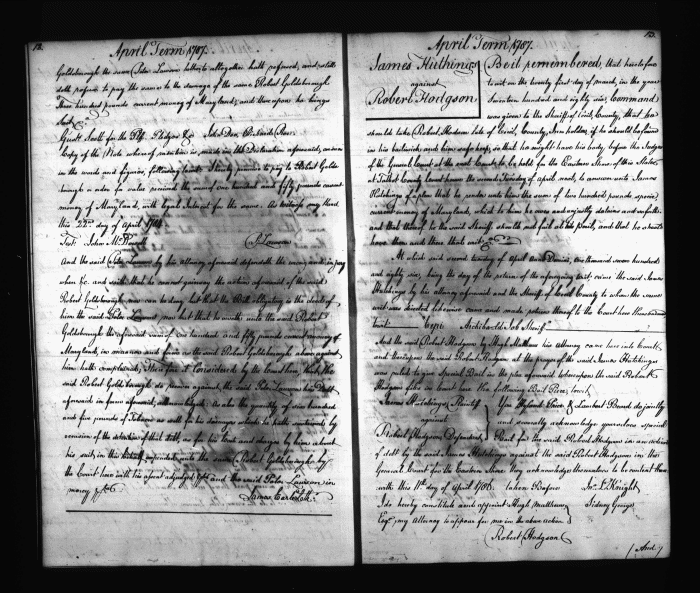 12.
April Term 1787.
Goldsborough the same Peter Lawson
doth refuse to pay the same to the damage of the said Robert Goldsborough
three hundred pounds current money of Maryland; and thereupon he brings
suit &c
Gust. Scott for the Plff. Pledges &c John Doe Richard Roe
Copy of the Note whereof mention is made in the Declaration aforesaid,
in the words and figures following to wit I promise to pay to Robert Golds
borough or order for value received the sum of one hundred and fifty pounds current
money of Maryland, with legal Interest for the same. As witness my hand
this 22nd day of April 1784
Test. John McDowell P. Lawson
And the said Peter Lawson by his attorney aforesaid defendeth the wrong and injury
when &c. and saith that he cannot gainsay the action aforesaid of the said
Robert Goldsborough nor can he deny but that the Bill obligatory is the deed of
him the said Peter Lawson nor but that he oweth unto the said Robert
Goldsborough the aforesaid sum of one hundred and fifty pounds current money of
Maryland, in manner and form as the said Robert Goldsborough above against
him hath complained. Therefore it is Considered by the Court here, that the
said Robert Goldsborough do recover against the said Peter Lawson his Debt
aforesaid in form aforesaid, also the quantity of six hundred
and five pounds of Tobacco as well for his damages which he hath sustained by
occasion of the detention of that debt, as for his Costs and charges by him about
his suit in this behalf expended unto the said Robert Goldsborough by
the Court here with his assent adjudged &c and the said Peter Lawson in
mercy &c
James Earle Clk.
13.
April Term 1787.
James Hutchings
against
Robert Hodgson
Be it remembered, that heretofore
to wit on the twenty first day of march, in the year
Seventeen hundred and eighty six, Command
was given to the Sheriff of Cecil County, that he
should take Robert Hodgson late of Cecil County, if he should be found
in his bailiwick, and him safe keep, so that he might have his body, before the Judges
of the General Court at the next Court, to be held for the Eastern Shore of this State,
at Talbot County Court house the second Tuesday of April next, to answer unto James
Hutchings of a plea that he render unto him the sum of two hundred pounds specie
current money of Maryland, which to him he owes and unjustly detains and
and that thereof he the said Sheriff should not fail at his peril, and that he should
have then and there that writ &c
At which said second tuesday of April Anno Domini, one thousand seven hundred
and eighty six, being the day of the return of the aforegoing writ; came the said James
Hutchings by his attorney aforesaid and the Sheriff of Cecil County to whom the same
writ was directed likewise came and made return thereof to the Court here
towit Cepi Archibald Job Sheriff
And the said Robert Hodgson by Hugh Matthews his attorney came here into Court
and thereupon the said Robert Hodgson at the prayer of the said James Hutchings
was ruled to give Special Bail in the plea aforesaid whereupon the said Robert
Hodgson files in Court here the following Bail Piece, towit,
James Hutchings Plaintiff
against
Robert Hodgson Defendant
You Hyland Price & Lambert Beard do jointly
and severally acknowledge yourselves special
Bail for the said Robert Hodgson in an action
of debt by the said James Hutchings against the said Robert Hodgson in the
General Court for the Eastern Shore they acknowledge themselves to be content there
with this 11th day of April 1786. taken Before Jno. D. Knight
I do hereby constitute and appoint Hugh Matthews Sidney George
Esqr. my Attorney to appear for me in the above Action
Robert Hodgson
(And)